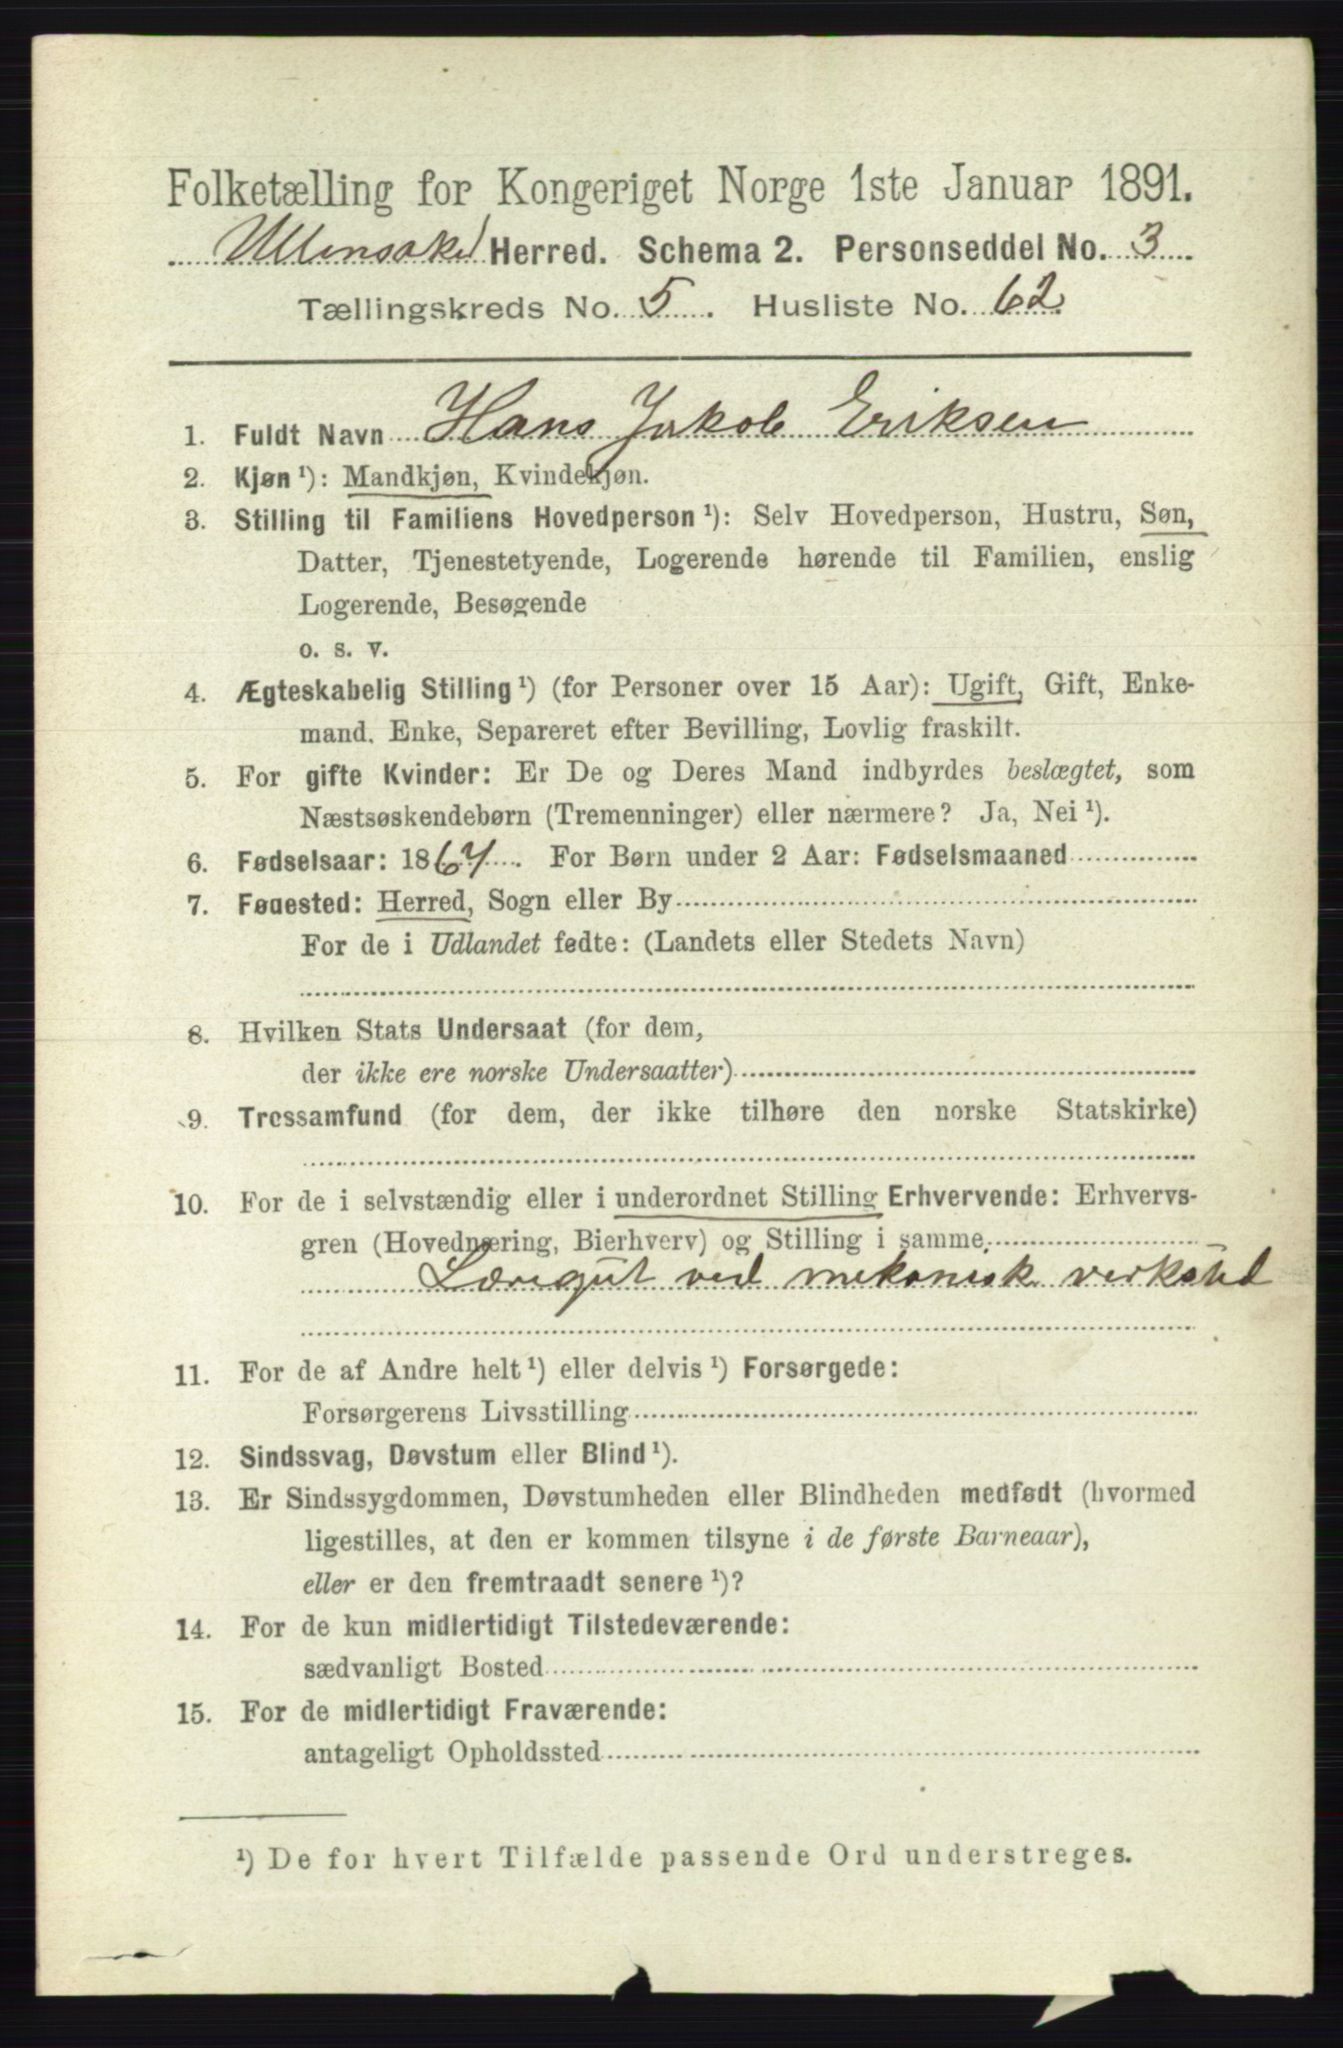 Folketælling for Kongeriget Norge 1ste Januar 1891.
Ullensaker Herred. Schema 2. Personseddel No. 3
Tællingskreds No. 5. Husliste No. 62
1. Fuldt Navn Hans Jakob Eriksen
2. Kjøn ¹): Mandkjøn, Kvindekjøn.
3. Stilling til Familiens Hovedperson ¹): Selv Hovedperson, Hustru, Søn,
Datter, Tjenestetyende, Logerende hørende til Familien, enslig
Logerende, Besøgende
o. s. v.
4. Ægteskabelig Stilling ¹) (for Personer over 15 Aar): Ugift, Gift, Enke-
mand, Enke, Separeret efter Bevilling, Lovlig fraskilt.
5. For gifte Kvinder: Er De og Deres Mand indbyrdes beslægtet, som
Næstsøskendebørn (Tremenninger) eller nærmere? Ja, Nei ¹).
6. Fødselsaar: 1867. For Børn under 2 Aar: Fødselsmaaned
7. Føuested: Herred, Sogn eller By
For de i Udlandet fødte: (Landets eller Stedets Navn)
8. Hvilken Stats Undersaat (for dem,
der ikke ere norske Undersaatter)
9. Trossamfund (for dem, der ikke tilhøre den norske Statskirke)
10. For de i selvstændig eller i underordnet Stilling Erhvervende: Erhvervs-
gren (Hovednæring, Bierhverv) og Stilling i samme.
Læregut ved mekanisk verksted
11. For de af Andre helt ¹) eller delvis ¹) Forsørgede:
Forsørgerens Livsstilling
12. Sindssvag, Døvstum eller Blind ¹).
13. Er Sindssygdommen, Døvstumheden eller Blindheden medfødt (hvormed
ligestilles, at den er kommen tilsyne i de første Barneaar),
eller er den fremtraadt senere ¹)?
14. For de kun midlertidigt Tilstedeværende:
sædvanligt Bosted
15. For de midlertidigt Fraværende:
antageligt Opholdssted
¹) De for hvert Tilfælde passende Ord understreges.